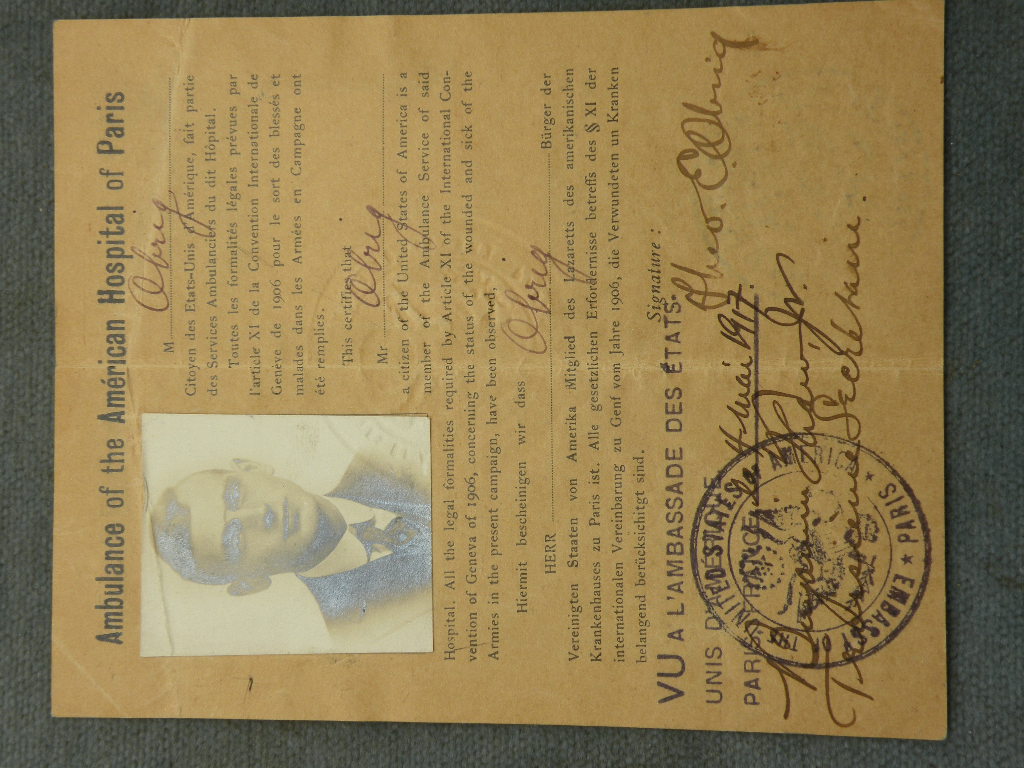 Ambulance of the Américan Hospital of Paris
M Obrig
Citoyen des Etats-Unis d'Amérique, fait partie
des Services Ambulanciers du dit Hôpital.
Toutes les formalités légales prévues par
l'article XI de la Convention Internationale de
Genève de 1906 pour le sort des blessés et
malades dans les Armées en Campagne ont
été remplies.
This certifies that
Mr Obrig
a citizen of the United States of America is a
member of the Ambulance Service of said
Hospital. All the legal formalities required by Article XI of the International Con-
vention of Geneva of 1906, concerning the status of the wounded and sick of the
Armies in the present campaign, have been observed.
Hiermit bescheinigen wir dass
HERR Obrig Bürger der
Vereinigten Staaten von Amerika Mitglied des Lazaretts des amerikanischen
Krankenhauses zu Paris ist. Alle gesetzlichen Erfordernisse betreffs des § XI der
internationalen Vereinbarung zu Genf vom Jahre 1906, die Verwundeten un Kranken
belangend berücksichitgt sind.
Signature :
Theo. E. Obrig
VU A L'AMBASSADE DES ÉTATS-
UNIS D'AMÉRIQUE
PARIS, FRANCE, Le 4 mai 1917.
Benjamin Jr.
Secrétaire.
EMBASSY OF THE UNITED STATES OF AMERICA
★ PARIS ★